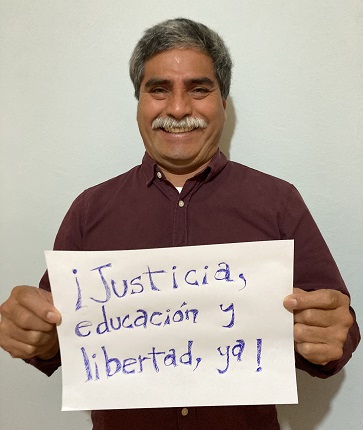 ¡Justicia,
educación y
libertad, ya!